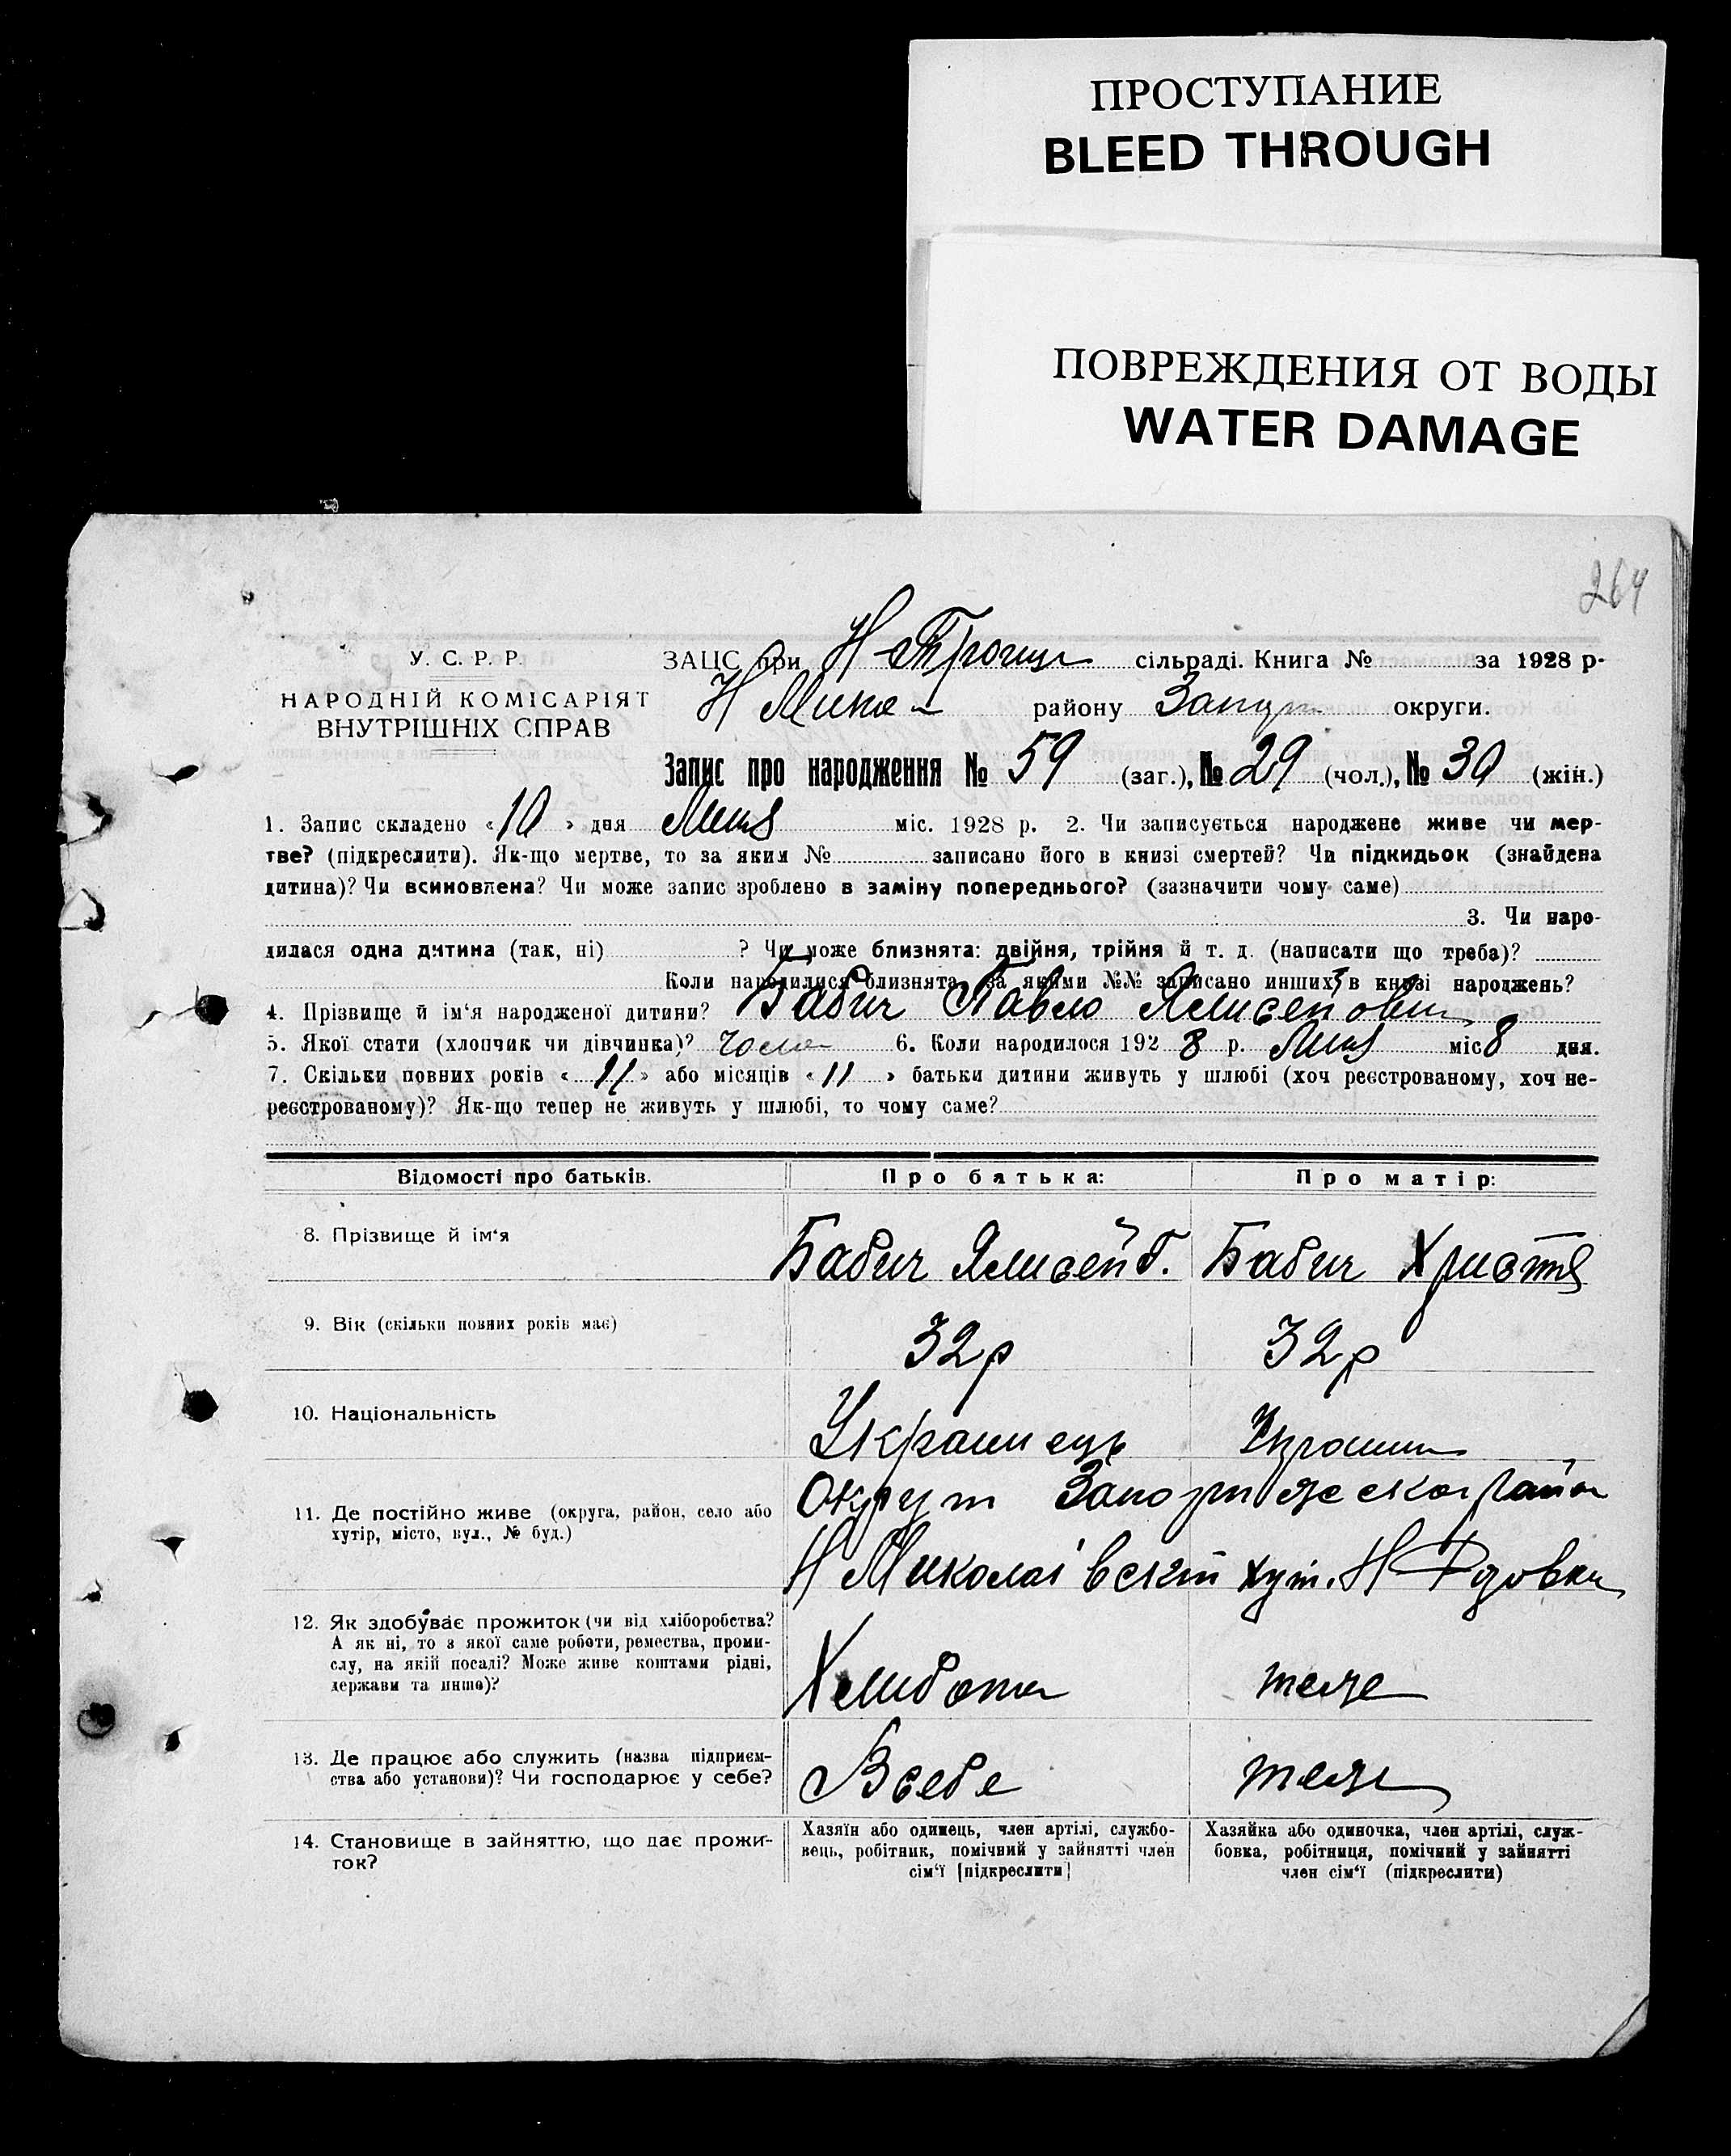 ПРОСТУПАНИЕ
BLEED THROUGH
ПОВРЕЖДЕНИЯ ОТ ВОДЫ
WATER DAMAGE
264
У. С. Р. Р.
НАРОДНІЙ КОМІСАРІЯТ
ВНУТРІШНІХ СПРАВ
ЗАЦС при Н сільраді. Книга № за 1928 р.
Н Мико району Запор округи.
Запис про народження № 59 (заг.), № 29 (чол.), № 30 (жін.)
1. Запис складено «10» дня міс. 1928 р. 2. Чи записується народжене живе чи мер-
тве? (підкреслити). Як-що мертве, то за яким № записано його в книзі смертей? Чи підкидьок (знайдена
дитина)? Чи всиновлена? Чи може запис зроблено в заміну попереднього? (зазначити чому саме)
3. Чи наро-
дилася одна дитина (так, ні) ? Чи може близнята: двійня, трійня й т. д. (написати що треба)?
Коли народилися близнята, за якими №№ записано инших в книзі народжень?
4. Прізвище й ім'я народженої дитини? Бабич Павло
5. Якої стати (хлопчик чи дівчинка)? 6. Коли народилося 1928 р. міс 8 дня.
7. Скільки повних років «11» або місяців «11» батьки дитини живуть у шлюбі (хоч реєстрованому, хоч не-
реєстрованому)? Як-що тепер не живуть у шлюбі, то чому саме?
Відомості про батьків. Про батька: Про матір:
8. Прізвище й ім'я Бабич Ялисей Г. Бабич Христя
9. Вік (скільки повних років має) 32 р 32 р
10. Національність Українець
11. Де постійно живе (округа, район, село або
хутір, місто, вул., № буд.)
Округ
Н Миколаївский хут. Н
12. Як здобуває прожиток (чи від хліборобства?
А як ні, то з якої саме роботи, ремества, проми-
слу, на якій посаді? Може живе коштами рідні,
держави та инше)?
теж
13. Де працює або служить (назва підприєм-
ства або установи)? Чи господарює у себе?
В себе теж
14. Становище в зайняттю, що дає прожи-
ток?
Хазяїн або одинець, член артілі, службо-
вець, робітник, помічний у зайнятті член
сім'ї [підкреслити]
Хазяйка або одиночка, член артілі, служ-
бовка, робітниця, помічний у зайнятті
член сім'ї (підкреслити)